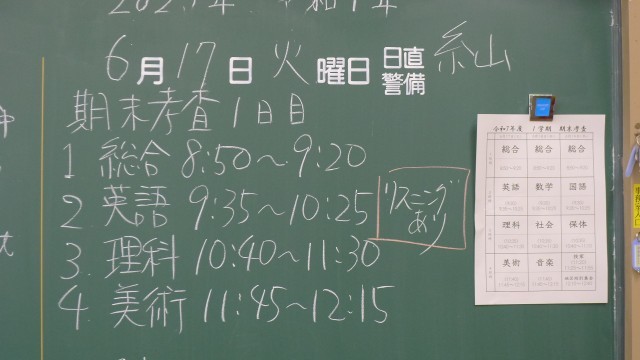 6月17日 火曜日 日直 警備 糸山
期末考査1日目
1 総合 8:50〜9:20
2. 英語 9:35〜10:25 リスニングあり
3. 理科 10:40〜11:30
4. 美術 11:45〜12:15
令和7年度 1学期 期末考査
総合 総合 総合
英語 数学 国語
理科 社会 保体
美術 音楽